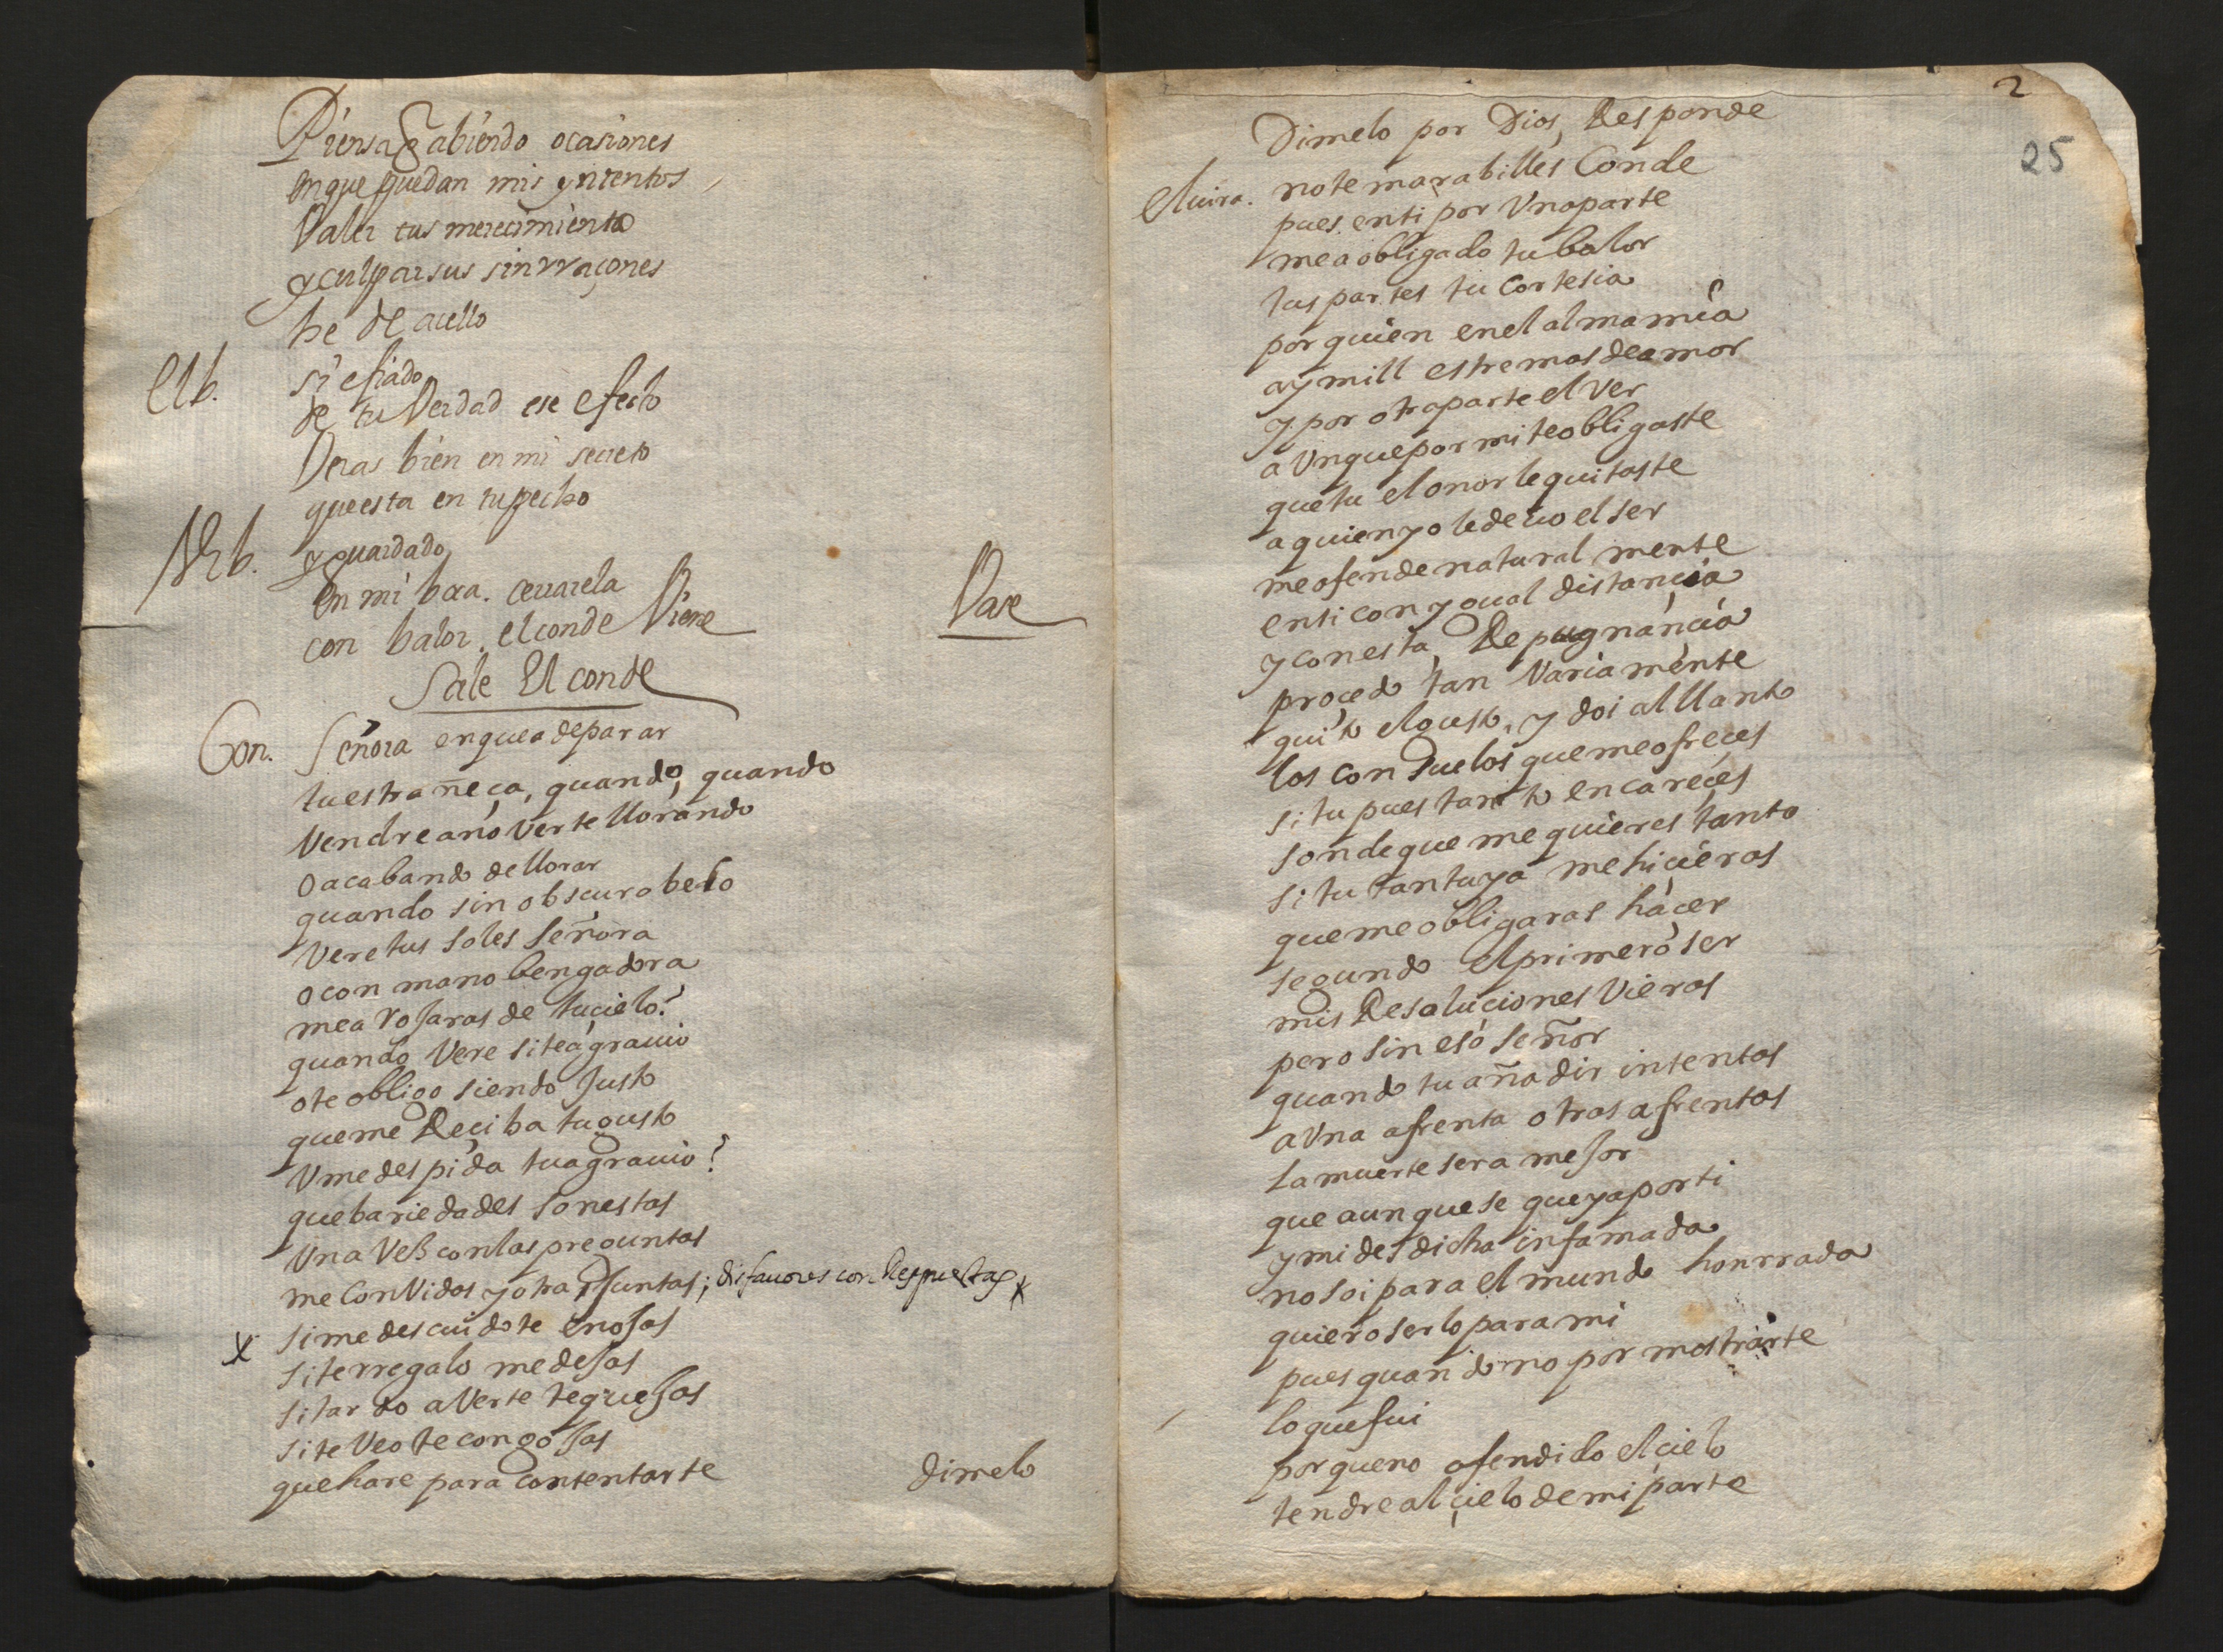 Piensa q̃ abiendo ocasiones
en que puedan mis yntentos
Valer tus merecimientos
y culpar sus sinrraçones
he de acello
Elb. si esfiado
de tu Verdad ese efecto
Veras bien en mi secreto
que esta en tu pecho
Nb. y guardado
En mi boca. cerrarela
con balor. el conde Viene Vase
Sale El conde
Con. Señora en que a de parar
tu estrañeça, quando, quando
Vendre a no Verte llorando
o acabando de llorar
quando sin obscuro belo
Vere tus soles señora
o con mano bengadora
me a rojaras de tu cielo?
quando Vere si te agrauio
o te obligo siendo Justo
que me Reciba tu gusto
V me despida tu agrauio?
que bariedades son estas
Vna Veß con las preguntas
me conVidas y otra Juntas; disfauores con Respuestas x
x si me descuido te enojas
si te rregalo me dejas
si tardo a Verte te quejas
si te Veo te congojas
que hare para contentarte
dimelo
2
25
Dimelo por Dios, Responde
eluira. no te marabilles Conde
pues en ti por Vna parte
me a obligado tu balor
tus partes tu cortesia
por quien en el alma mia
ay mill estremos de amor
y por otra parte el Ver
a Vnque por mi te obligaste
que tu el onor le quitaste
a quien yo le deuo el ser
me ofende natural mente
en ti con ygual distancia
y con esta Repugnancia
procedo tan Variamente
quito el gusto, y doi al llanto
los consuelos que me ofreces
si tu pues tanto encareces
son de que me quieres tanto
si tu tan tuya me hicieras
que me obligaras hacer
segundo el primero ser
mis Resoluciones Vieras
pero sin eso señor
quando tu añadir intentas
a Vna afrenta otras afrentas
la muerte sera mejor
que aunque se que ya por ti
y mi desdicha infamada
no soi para el mundo honrrada
quiero serlo para mi
pues quando no por mostrarte
lo que fui
porque no ofendido el cielo
tendre al cielo de mi parte